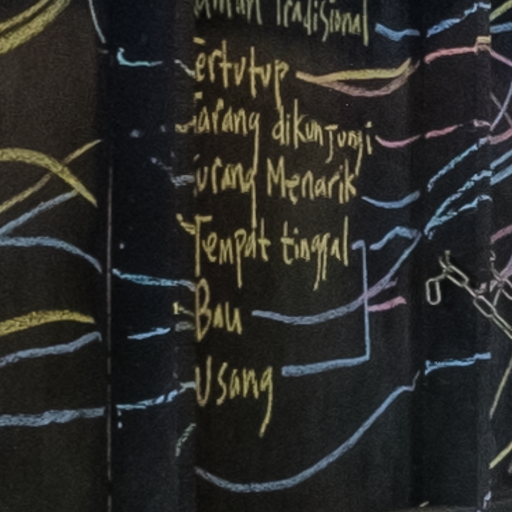 Tradisional
Tertutup
Jarang dikunjungi
Kurang Menarik
Tempat tinggal
Bau
Usang